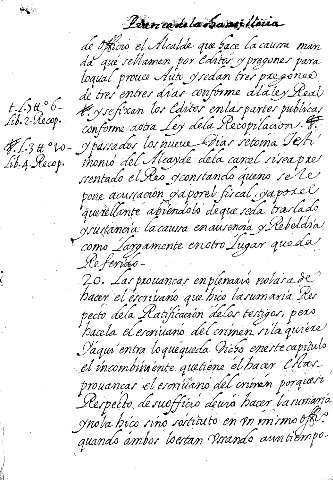 Practica de la Chancilleria
de officio el Alcalde que hace la causa man
da que se llamen por Edictos, y pregones para
lo qual provee Auto, y se dan tres pregones
de tres en tres dias conforme ala ley Real
t. y se fixan los Edictos en las partes publicas
conforme a otra Ley de la Recopilacion.
y passados los nueve dias se toma Testi
monio del Alcayde de la carcel si se a pre
ssentado el Reo, y constando que no se le
pone acussación, ya por el fiscal, ya por el
querellante abiendolo de que se da traslado
y sustancia la causa en ausencia y Rebeldia
como largamente en otro Lugar queda
Referido.
20. Las provancas en plenario no las a de
hacer el escrivano que hico la sumaria Res
pecto de la Ratificación de los testigos pero
hacela el escrivano del crimen si la quiere
Y aqui entra lo que queda dicho en este capitulo
el incombiniente que tiene el hacer Estas
provancas el escrivano del crimen porque si
Respecto de su officio devio hacer la sumaria
y no la hico sino sostituto en un mismo offo.
quando ambos lo estan usando a un tiempo.
t. L. 3 tt.º 6.
Lib. 2. Recop.
L. 3 tt.º 10.
Lib. 4. Recop.